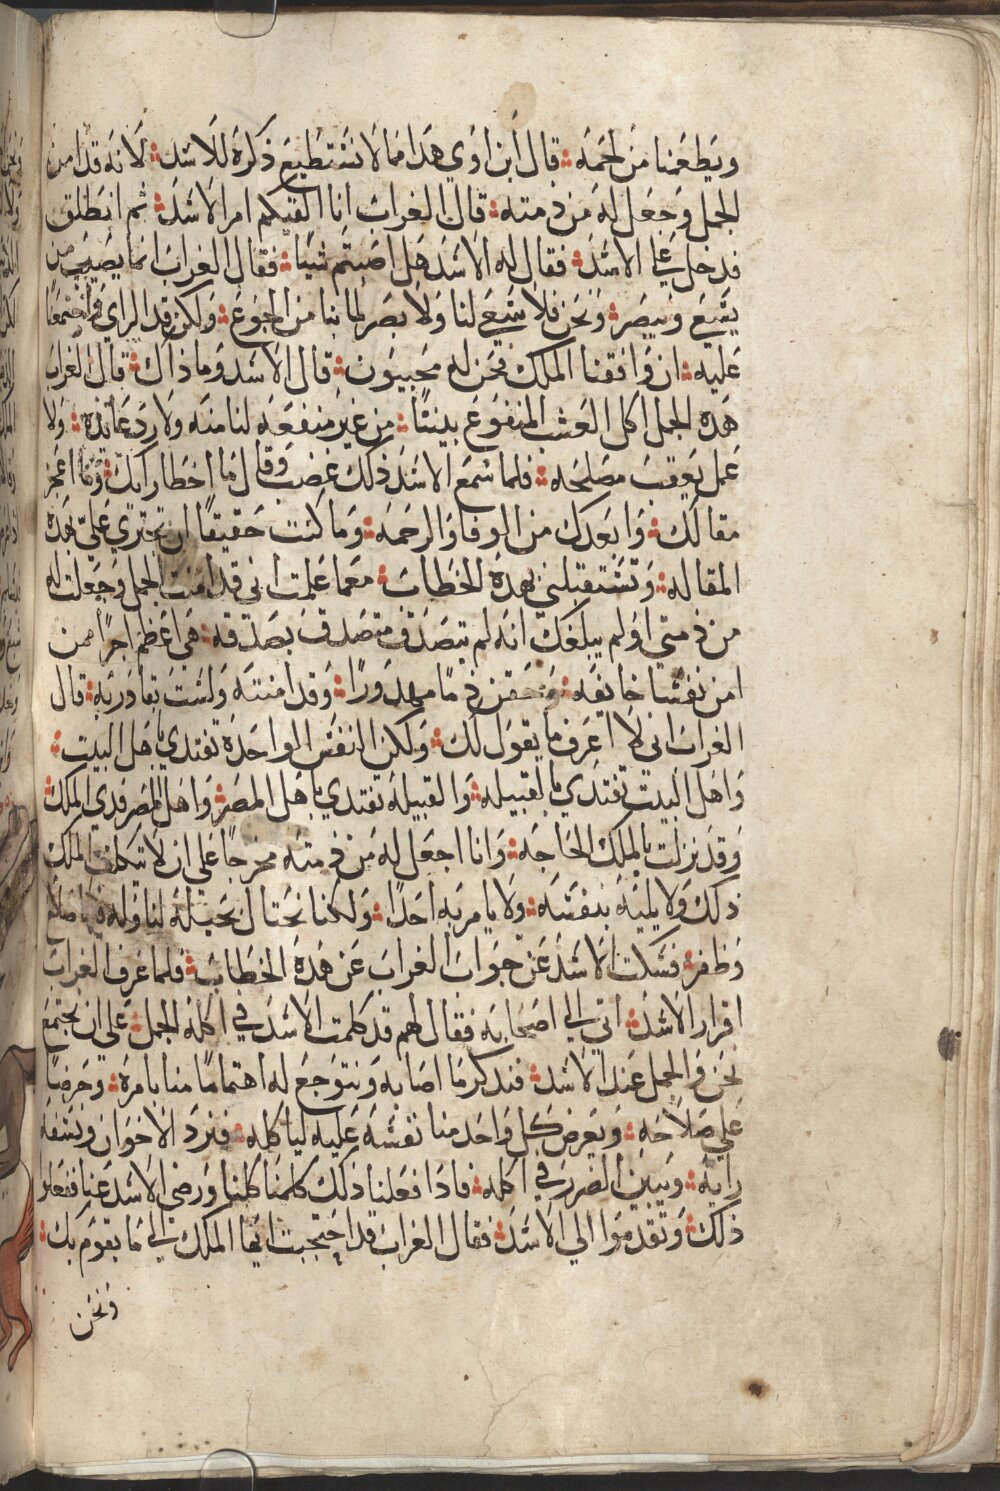 ويطعمنا من لحمه قال ابن اوي هدا مما لا نستطيع ذكره للاسد لانه قد امن
الجمل وجعل له من ذمته قال الغراب انا اكفيكم امر الاسد ثم انطلق
فدخل علي الاسد فقال له الاسد هل اصبتم شيا فقال الغراب انما يصيب من
يشبع ويبصر ونحن فلا شبع لنا ولا بصر لما بنا من الجوع ولكن قد الراي
عليه ان وافقنا الملك فنحن له مجيبون قال الاسد وما ذاك قال الغراب
هده الجمل اكل العشب المتفوع بيننا من غير منفعه لنا منه ولا رد عايده ولا
عمل يعقب مصلحه فلما سمع الاسد ذلك غضب وقال ما اخطا رايك وما اعجز
مقالك وابعدك من الوفا والرحمه وما كنت حقيقا ان تجتري علي بهده
المقاله وتستقبلني بهده الخطاب مع ما علمت اني قد امنت الجمل وجعلت له
من ذمتي او لم يبلغك انه لم يتصدق متصدق بصدقه هي اعظم اجرا ممن
امن نفسا خايفه وحقن دما مهدورا وقد امنته ولست بغادر به قال
الغراب اني لا اعرف ما يقول لك ولكن النفس الواحده تفتدي باهل البيت
واهل البيت تفتدي بالقبيله والقبيله تفتدي باهل المصر واهل المصر فدي الملك
وقد نزلت بالملك الحاجه وانا اجعل له من ذمته مخرجا علي ان لا يتكلف الملك
ذلك ولا يليه بنفسه ولا يامر به احدا ولكنا نحتال بحيله لنا وله فيها صلاح
وظفر فسكت الاسد عن جواب الغراب عن هده الخطاب فلما عرف الغراب
اقرار الاسد اتي الي اصحابه فقال لهم قد كلمت الاسد في اكله الجمل علي ان نجتمع
نحن والجمل عند الاسد فندكر ما اصابه ونتوجع له اهتماما منا بامره وحرصا
علي صلاحه ويعرض كل واحد منا نفسه عليه لياكله فنرد الاخوان ونسفه
رايه ونبين الضرر في اكله فادا فعلنا ذلك كلمنا كلنا ورضي الاسد عنا ففعلوا
ذلك وتقدموا الي الاسد فقال الغراب قد احتجبت ايها الملك الي ما يقوم بك
ونحن